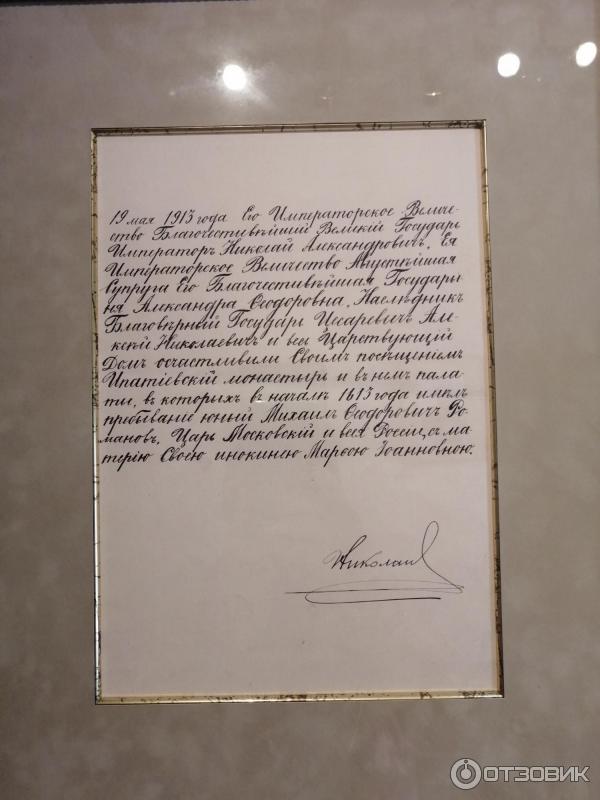 19 мая 1913 года Его Императорское Величе-
ство Благочестивѣйшій Великій Государь
Императоръ Николай Александровичъ, Ея
Императорское Величество Августѣйшая
Супруга Его Благочестивѣйшая Государы
ня Александра Ѳеодоровна, Наслѣдникъ
Благовѣрный Государь Цесаревичъ Але-
ксѣй Николаевичъ и весь Царствующій
Домъ осчастливили Своимъ посѣщеніемъ
Ипатіевскій монастырь и въ немъ пала-
ты, въ которыхъ въ началѣ 1613 года имѣлъ
пребываніе юный Михаилъ Ѳеодоровичъ Ро-
мановъ, Царь Московскій и всея Россіи, съ ма-
терію Своею инокинею Марѳою Іоанновною.
Николай
ОТЗОВИК